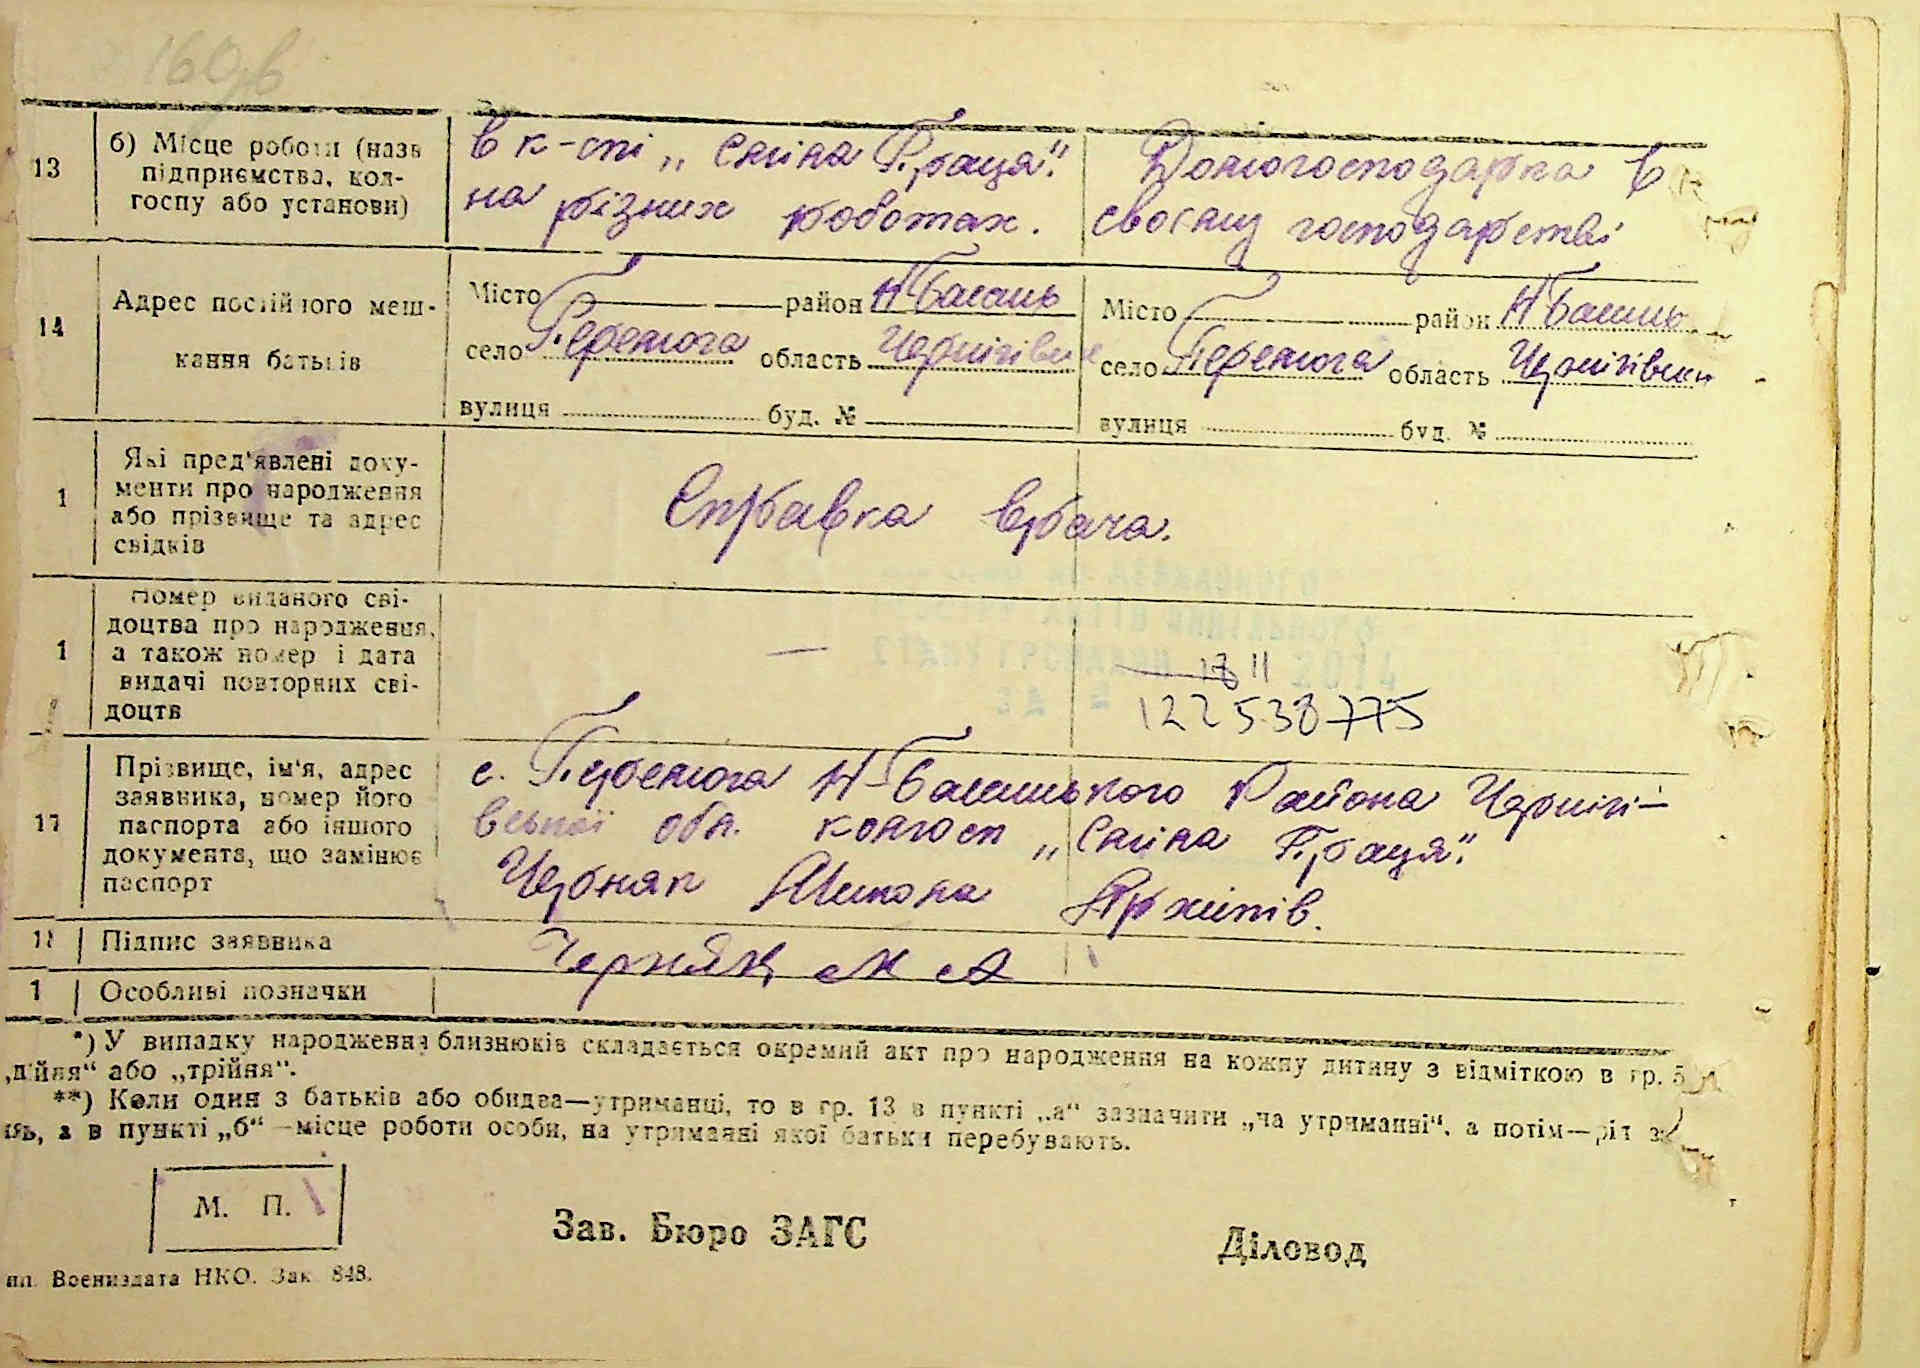 160зв
13
б) Місце роботи (назв
підприємства, кол-
госпу або установи)
в к-спі „Спільна Праця".
на різних роботах.
Домогосподарка в
своєму господарстві
14
Адрес постійного меш-
кання батьків
Місто район Н Басань
село Перемога область Чернігівськ
вулиця буд. №
Місто район Н Басань
село Перемога область Чернігівськ
вулиця буд. №
1
Які пред'явлені доку-
менти про народження
або прізвище та адрес
свідків
Справка врача.
1
Номер виданого сві-
доцтва про народження,
а також номер і дата
видачі повторних сві-
доцтв
—
2014
122538775
17
Прізвище, ім'я, адрес
заявника, номер його
паспорта або іншого
документа, що замінює
паспорт
с. Перемога Н-Басанського Района Чернігі-
вської обл. колгосп „Спільна Праця".
Черняк Микола Архипів.
18 Підпис заявника
Черняк М А
1 Особливі позначки
*) У випадку народження близнюків складається окремий акт про народження на кожну дитину з відміткою в гр. 5
„двійня" або „трійня".
**) Коли один з батьків або обидва—утриманці, то в гр. 13 в пункті „а" зазначити „на утриманні", а потім—рід за-
нять, а в пункті „б"—місце роботи особи, на утриманні якої батьки перебувають.
М. П.
Зав. Бюро ЗАГС
Діловод
ип. Воениздата НКО. Зак. 848.